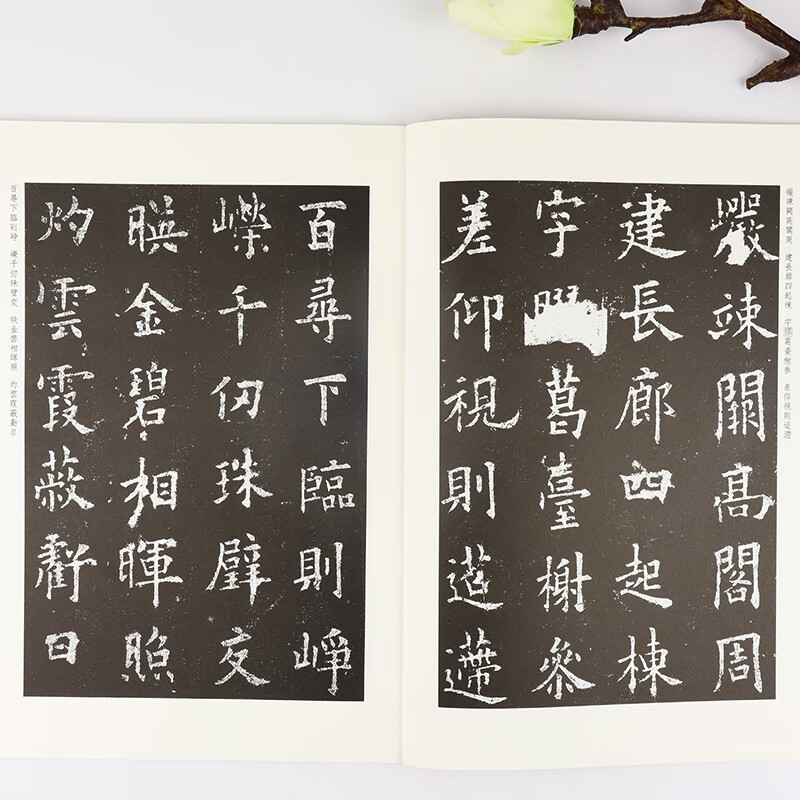 巖竦闕高閣周 建長廊四起棟 宇[膠]葛臺榭參 差仰視則迢遰
巖竦闕高閣周
建長廊四起棟
宇葛臺榭參
差仰視則迢遰
百尋下臨則崢
嶸千仞珠璧交
暎金碧相暉照
灼雲霞蔽虧日
百尋下臨則崢 嶸千仞珠璧交 映金碧相暉照 灼雲霞蔽虧日